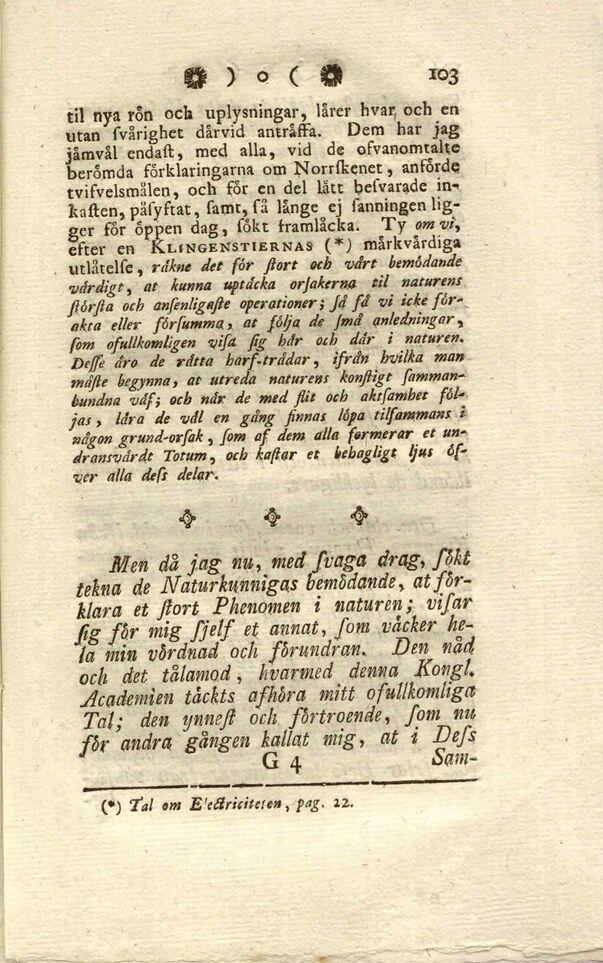 ) o ( 103
til nya rön och uplysningar, lärer hvar och en
utan ſvårighet därvid anträffa. Dem har jag
jämväl endaſt, med alla, vid de ofvanomtalte
berömda förklaringarna om Norrſkenet, anförde
tvifvelsmålen, och för en del lätt beſvarade in-
kaſten, påſyftat, ſamt, ſå länge ej ſanningen lig-
ger för öppen dag, ſökt framlåcka. Ty om vi,
efter en KLINGENSTIERNAS (*) märkvärdiga
utlåtelſe, räkne det för ſtort och vårt bemödande
värdigt, at kunna uptäcka orſakerna til naturens
ſtörſta och anſenligaſte operationer; ſå få vi icke för-
akta eller förſumma, at följa de ſmå anledningar,
ſom ofullkomligen viſa ſig här och där i naturen.
Deſſe äro de rätta harf-trådar, ifrån hvilka man
måſte begynna, at utreda naturens konſtigt ſamman-
bundna väf; och når de med flit och aktſamhet föl-
jas, lära de väl en gång finnas löpa tilſammans i
någon grund-orſak, ſom af dem alla formerar et un-
dransvärdt Totum, och kaſtar et behagligt ljus öf-
ver alla deſs delar.
Men då jag nu, med ſvaga drag, ſökt
tekna de Naturkunnigas bemödande, at för-
klara et ſtort Phenomen i naturen; viſar
ſig för mig ſjelf et annat, ſom väcker he-
la min vördnad och förundran. Den nåd
och det tålamod, hvarmed denna Kongl.
Academien täckts afhöra mitt ofullkomliga
Tal; den ynneſt och förtroende, ſom nu
för andra gången kallat mig, at i Deſs
G 4 Sam-
(*) Tal om Electriciteten, pag. 22.